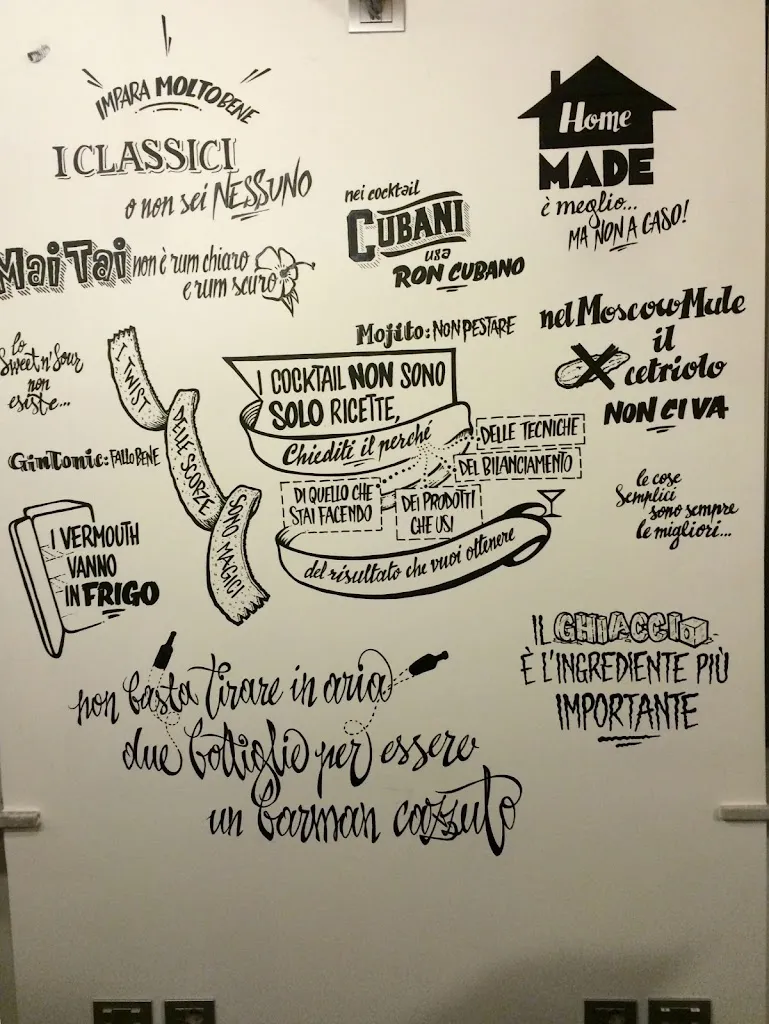 IMPARA MOLTO BENE
I CLASSICI
o non sei NESSUNO
Home
MADE
è meglio...
MA NON A CASO!
nei cocktail
CUBANI
usa
RON CUBANO
Mai Tai non è rum chiaro
e rum scuro
Mojito: NON PESTARE
nel Moscow Mule
il
cetriolo
NON CI VA
lo
Sweet n' Sour
non
esiste...
I TWIST
DELLE SCORZE
SONO MAGICI
I COCKTAIL NON SONO
SOLO RICETTE,
Chiediti il perché
DELLE TECNICHE
DEL BILANCIAMENTO
DI QUELLO CHE
STAI FACENDO
DEI PRODOTTI
CHE USI
del risultato che vuoi ottenere
GinTonic: FALLO BENE
le cose
Semplici
sono sempre
le migliori...
I VERMOUTH
VANNO
IN FRIGO
IL GHIACCIO
È L'INGREDIENTE PIÙ
IMPORTANTE
non basta tirare in aria
due bottiglie per essere
un barman cazzuto